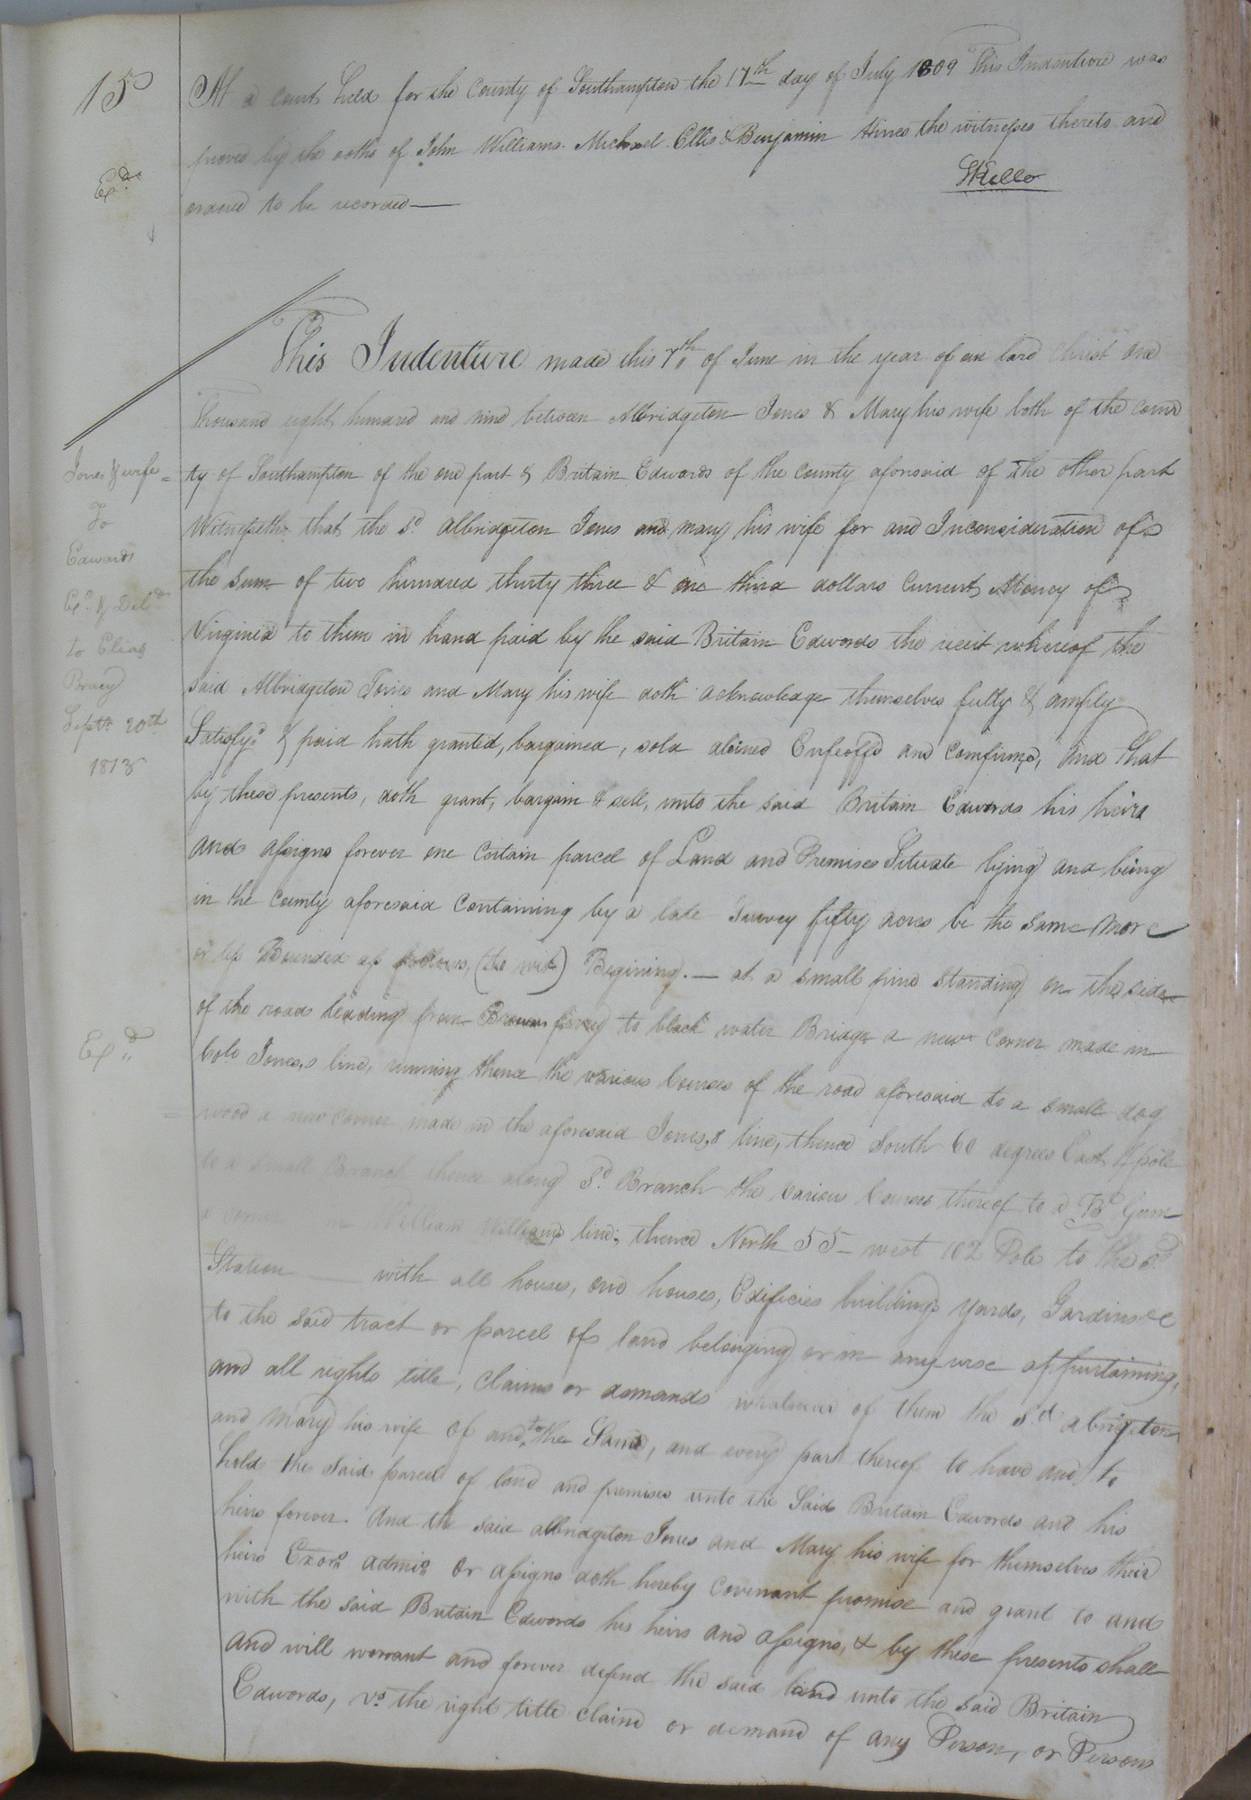 15
At a court held for the County of Southampton the 17th day of July 1809 This Indenture was
proved by the oaths of John Williams. Michael Ellis & Benjamin Hines the witnesses thereto and
Exd
ordered to be recorded —
SKello
This Indenture made this 7th of June in the year of our lord Christ one
thousand eight hundred and nine between Albridgeton Jones & Mary his wife both of the coun
ty of Southampton of the one part & Britain Edwards of the County aforesaid of the other part
Witnesseth that the sd. Albridgeton Jones and mary his wife for and Inconsideration of
the sum of two hundred thirty three & one third dollars Current Money of
Virginia to them in hand paid by the said Britain Edwards the receit whereof the
said Albridgeton Jones and Mary his wife doth acknowledge themselves fully & amply
Satisfyd. & paid hath granted, bargained, sold aliened Enfeoffd and confirmd, And that
by these presents, doth grant, bargain & sell, unto the said Britain Edwards his heirs
and assigns forever one certain parcel of Land and Premises Situate lying and being
in the County aforesaid Containing by a late Survey fifty acres be the same more
or less Bounded as follows, (to wit) Begining. — at a small pine standing on the side
of the road leading from Browns ferry to black water Bridge a new corner made in
Colo Jones,s line, running thence the various Courses of the road aforesaid to a small dog
wood a new corner made in the aforesaid Jones,s line, thence South 60 degrees East pole
to a small Branch thence along Sd. Branch the various Courses thereof to a Gum
a corner in William Williams line; thence North 55 — west 102 Pole to the sd
Station — with all houses, out houses, Edificies buildings Yards, Gardins &c
to the said tract or parcel of land belonging or in any wise appurtaining,
and all rights title, claims or demands whatsoever of them the sd albrigeton
and Mary his wife of and to the Same, and every part thereof to have and to
hold the said parcel of land and premises unto the Said Britain Edwards and his
heirs forever. And the said albridgeton Jones and Mary his wife for themselves their
heirs Exors admis or assigns doth hereby covenant promise and grant to and
with the said Britain Edwards his heirs and assigns, & by these presents shall
and will warrant and forever defend the said land unto the said Britain
Edwards, vs the right title claim or demand of any Person, or Persons
Jones & wife
To
Edwards
Exd. & Deld
to Elias
Bracy
Septr 20th
1813
Exd